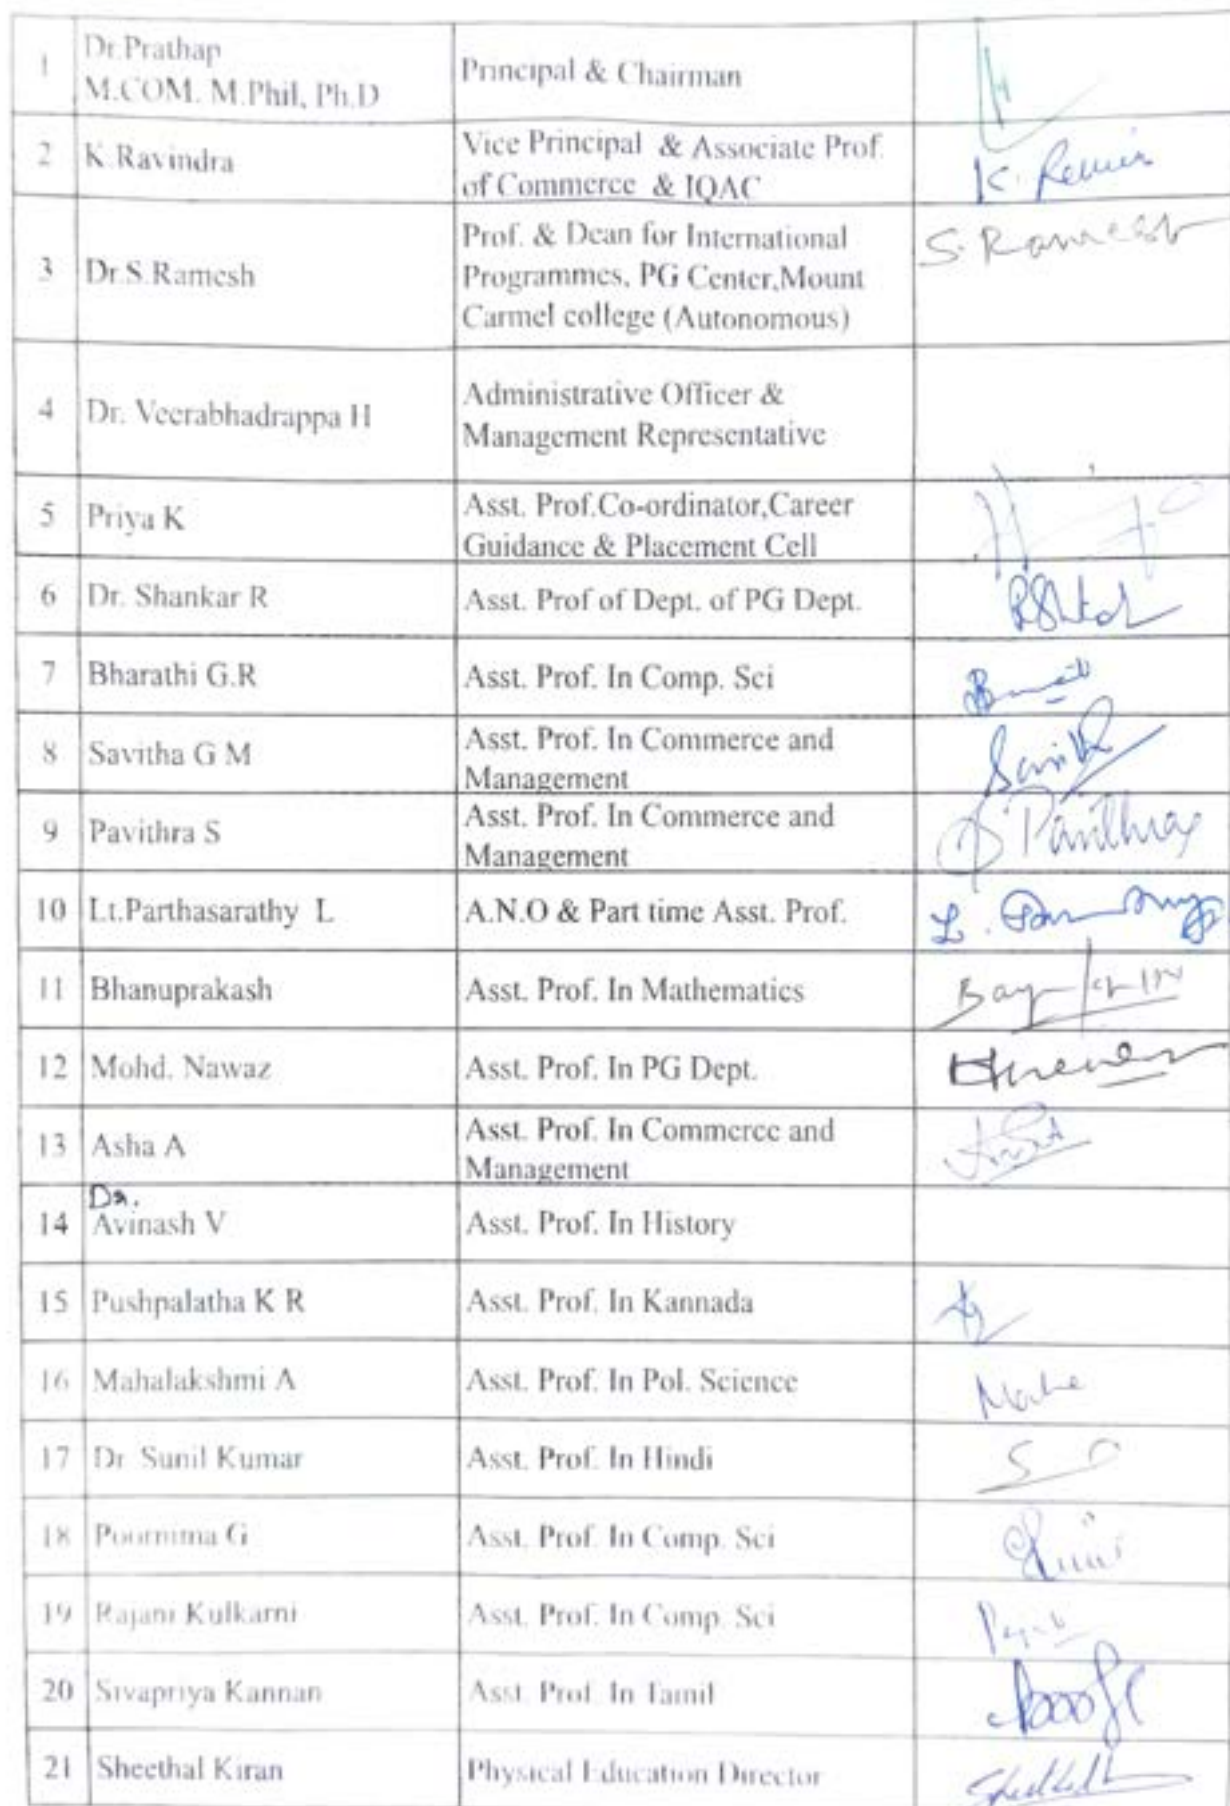 1 Dr.Prathap Principal & Chairman
M.COM. M.Phil, Ph.D
2 K.Ravindra Vice Principal & Associate Prof.
of Commerce & IQAC
3 Dr.S.Ramesh Prof. & Dean for International S. Ramesh
Programmes, PG Center,Mount
Carmel college (Autonomous)
4 Dr. Veerabhadrappa H Administrative Officer &
Management Representative
5 Priya K Asst. Prof.Co-ordinator,Career
Guidance & Placement Cell
6 Dr. Shankar R Asst. Prof of Dept. of PG Dept.
7 Bharathi G.R Asst. Prof. In Comp. Sci
8 Savitha G M Asst. Prof. In Commerce and
Management
9 Pavithra S Asst. Prof. In Commerce and
Management
10 Lt.Parthasarathy L A.N.O & Part time Asst. Prof.
11 Bhanuprakash Asst. Prof. In Mathematics
12 Mohd. Nawaz Asst. Prof. In PG Dept.
13 Asha A Asst. Prof. In Commerce and
Management
Dr.
14 Avinash V Asst. Prof. In History
15 Pushpalatha K R Asst. Prof. In Kannada
16 Mahalakshmi A Asst. Prof. In Pol. Science
17 Dr. Sunil Kumar Asst. Prof. In Hindi
18 Poornima G Asst. Prof. In Comp. Sci
19 Rajani Kulkarni Asst. Prof. In Comp. Sci
20 Sivapriya Kannan Asst. Prof. In Tamil
21 Sheethal Kiran Physical Education Director